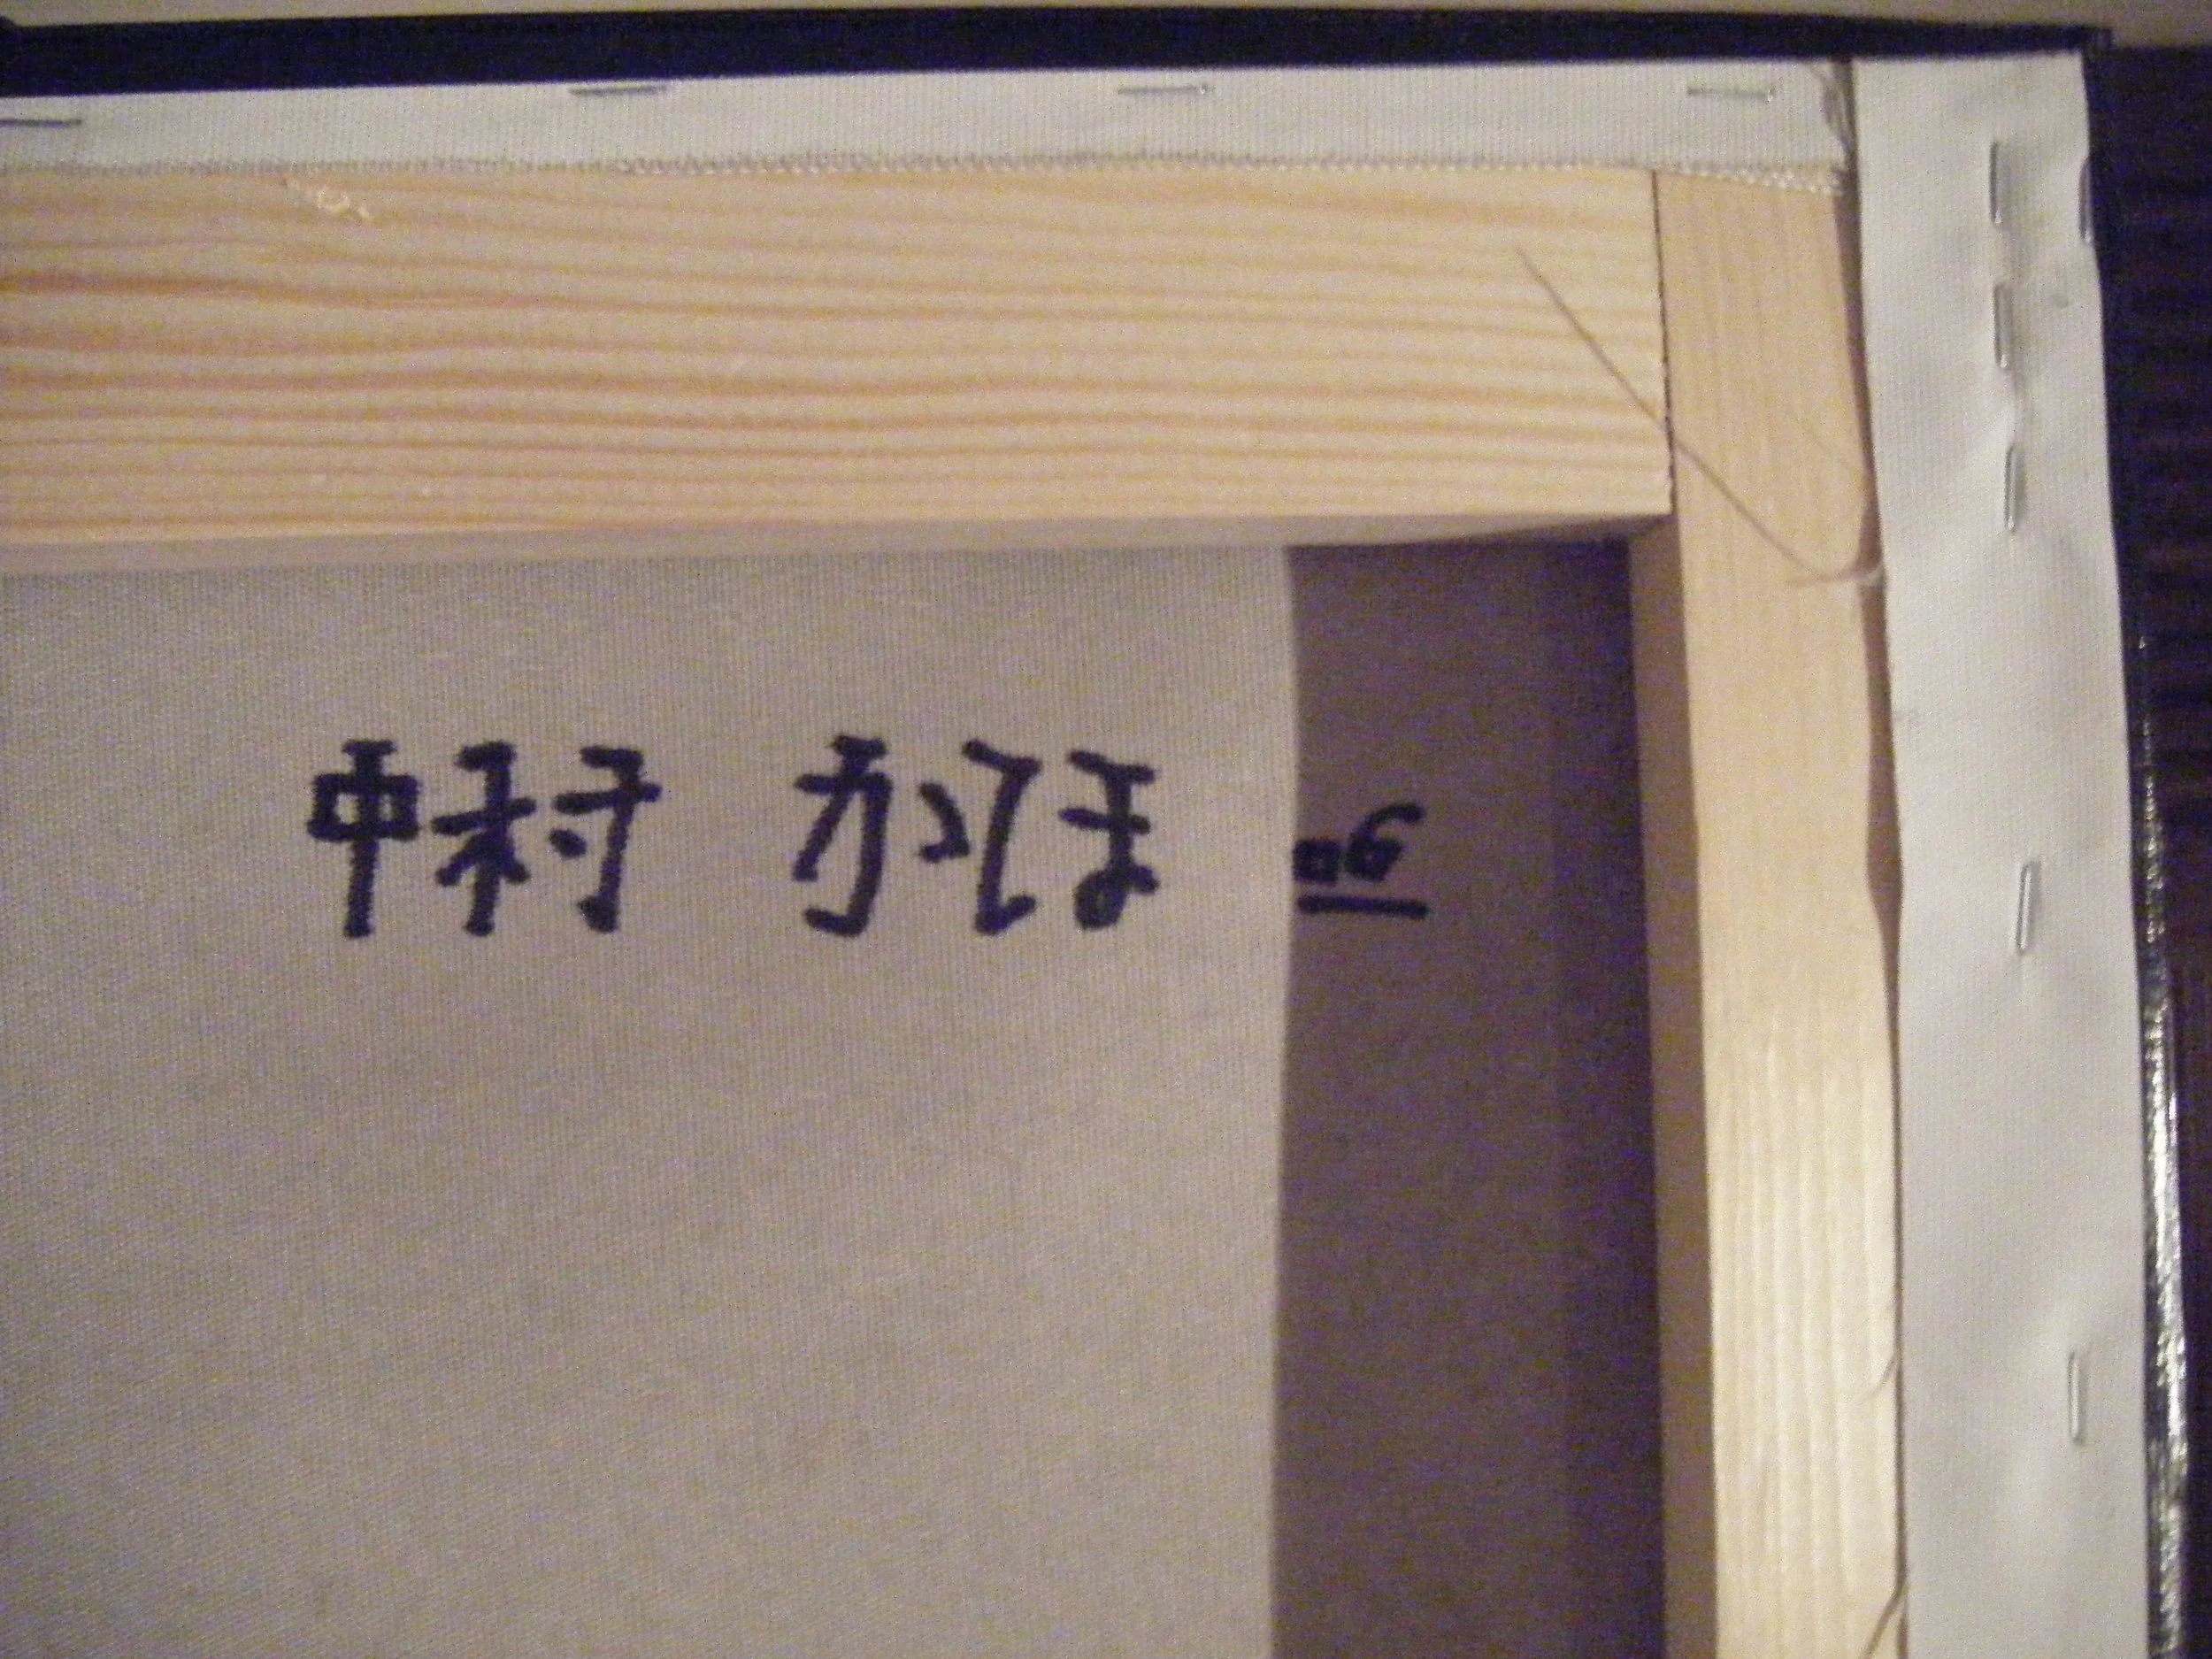 中村 かほ 06